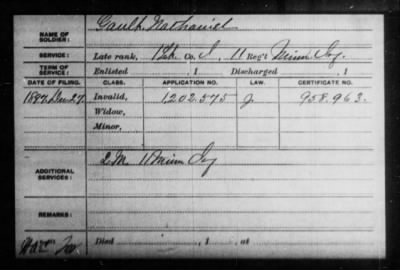 NAME OF SOLDIER: Gault, Nathaniel
SERVICE: Late rank, Co. I, 11 Reg't Minn Inf.
TERM OF SERVICE: Enlisted , 1 Discharged , 1
DATE OF FILING. CLASS. APPLICATION NO. LAW. CERTIFICATE NO.
1897, Dec 27. Invalid, 1202.575 J. 958.963.
Widow,
Minor,
ADDITIONAL SERVICES: 11 Minn Inf
REMARKS:
Died , 1 , at